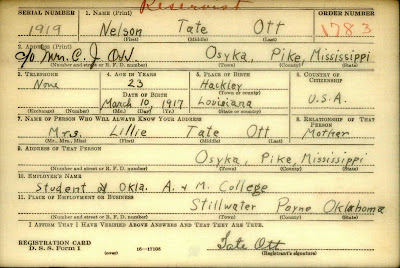 Reservist
SERIAL NUMBER 1. NAME (Print) ORDER NUMBER
1919 Nelson Tate Ott 1783
(First) (Middle) (Last)
2. ADDRESS (Print)
c/o Mrs. C. J. Ott Osyka, Pike, Mississippi
(Number and street or R. F. D. number) (Town) (County) (State)
3. TELEPHONE 4. AGE IN YEARS 5. PLACE OF BIRTH 6. COUNTRY OF CITIZENSHIP
None 23 Hackley
DATE OF BIRTH (Town or county)
March 10, 1917 Louisiana U.S.A.
(Exchange) (Number) (Mo.) (Day) (Yr.) (State or country)
7. NAME OF PERSON WHO WILL ALWAYS KNOW YOUR ADDRESS 8. RELATIONSHIP OF THAT PERSON
Mrs. Lillie Tate Ott Mother
(Mr., Mrs., Miss) (First) (Middle) (Last)
9. ADDRESS OF THAT PERSON
Osyka, Pike, Mississippi
(Number and street or R. F. D. number) (Town) (County) (State)
10. EMPLOYER'S NAME
Student at Okla. A. & M. College
11. PLACE OF EMPLOYMENT OR BUSINESS
Stillwater Payne Oklahoma
(Number and street or R. F. D. number) (Town) (County) (State)
I AFFIRM THAT I HAVE VERIFIED ABOVE ANSWERS AND THAT THEY ARE TRUE.
REGISTRATION CARD
D. S. S. Form 1 (over) 16—17105 Tate Ott
(Registrant's signature)